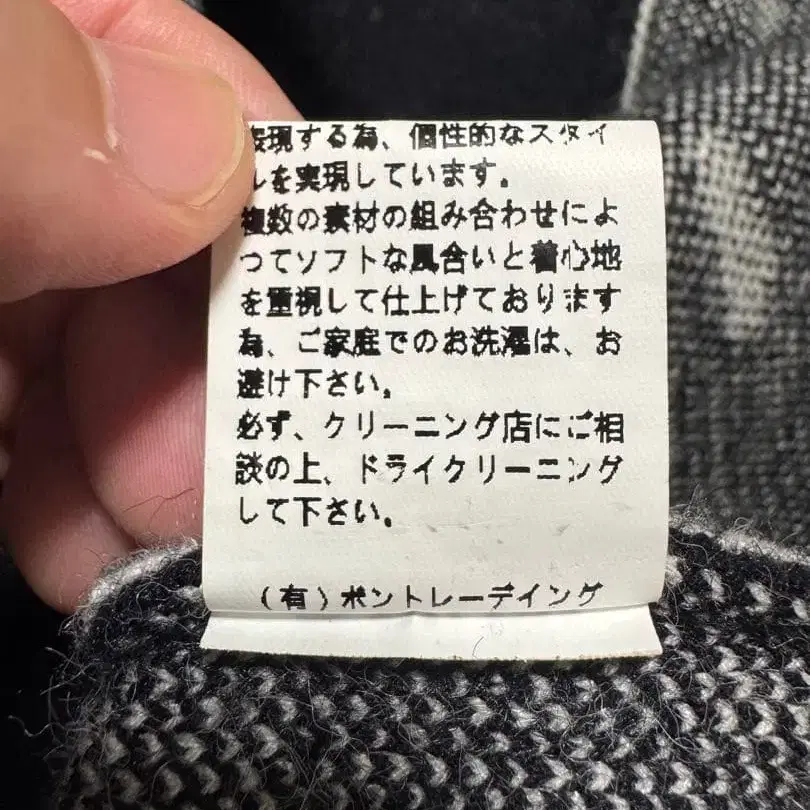 表現する為、個性的なスタイ
ルを実現しています。
複数の素材の組み合わせによ
ってソフトな風合いと着心地
を重視して仕上げております
為、ご家庭でのお洗濯は、お
避け下さい。
必ず、クリーニング店にご相
談の上、ドライクリーニング
して下さい。
（有）ボントレーデイング